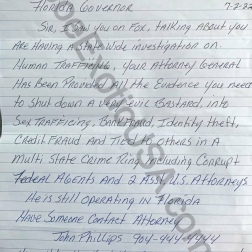 Florida Governor 7-2-22
Sir, I saw you on Fox, talking About you
Are Having a State Wide investigation on
Human Trafficking, Your Attorney General
Has Been Provided All the Evidence you need
to Shut down A very Evil Bastard, into
Sex Trafficing, Bank Fraud, Identity theft,
Credit Fraud And Tied to others in A
Multi State Crime Ring including Corrupt
Federal Agents And 2 Ass. U.S. Attorneys
He is still Operating in Florida
Have Someone Contact Attorney
John Phillips 904-444-4444